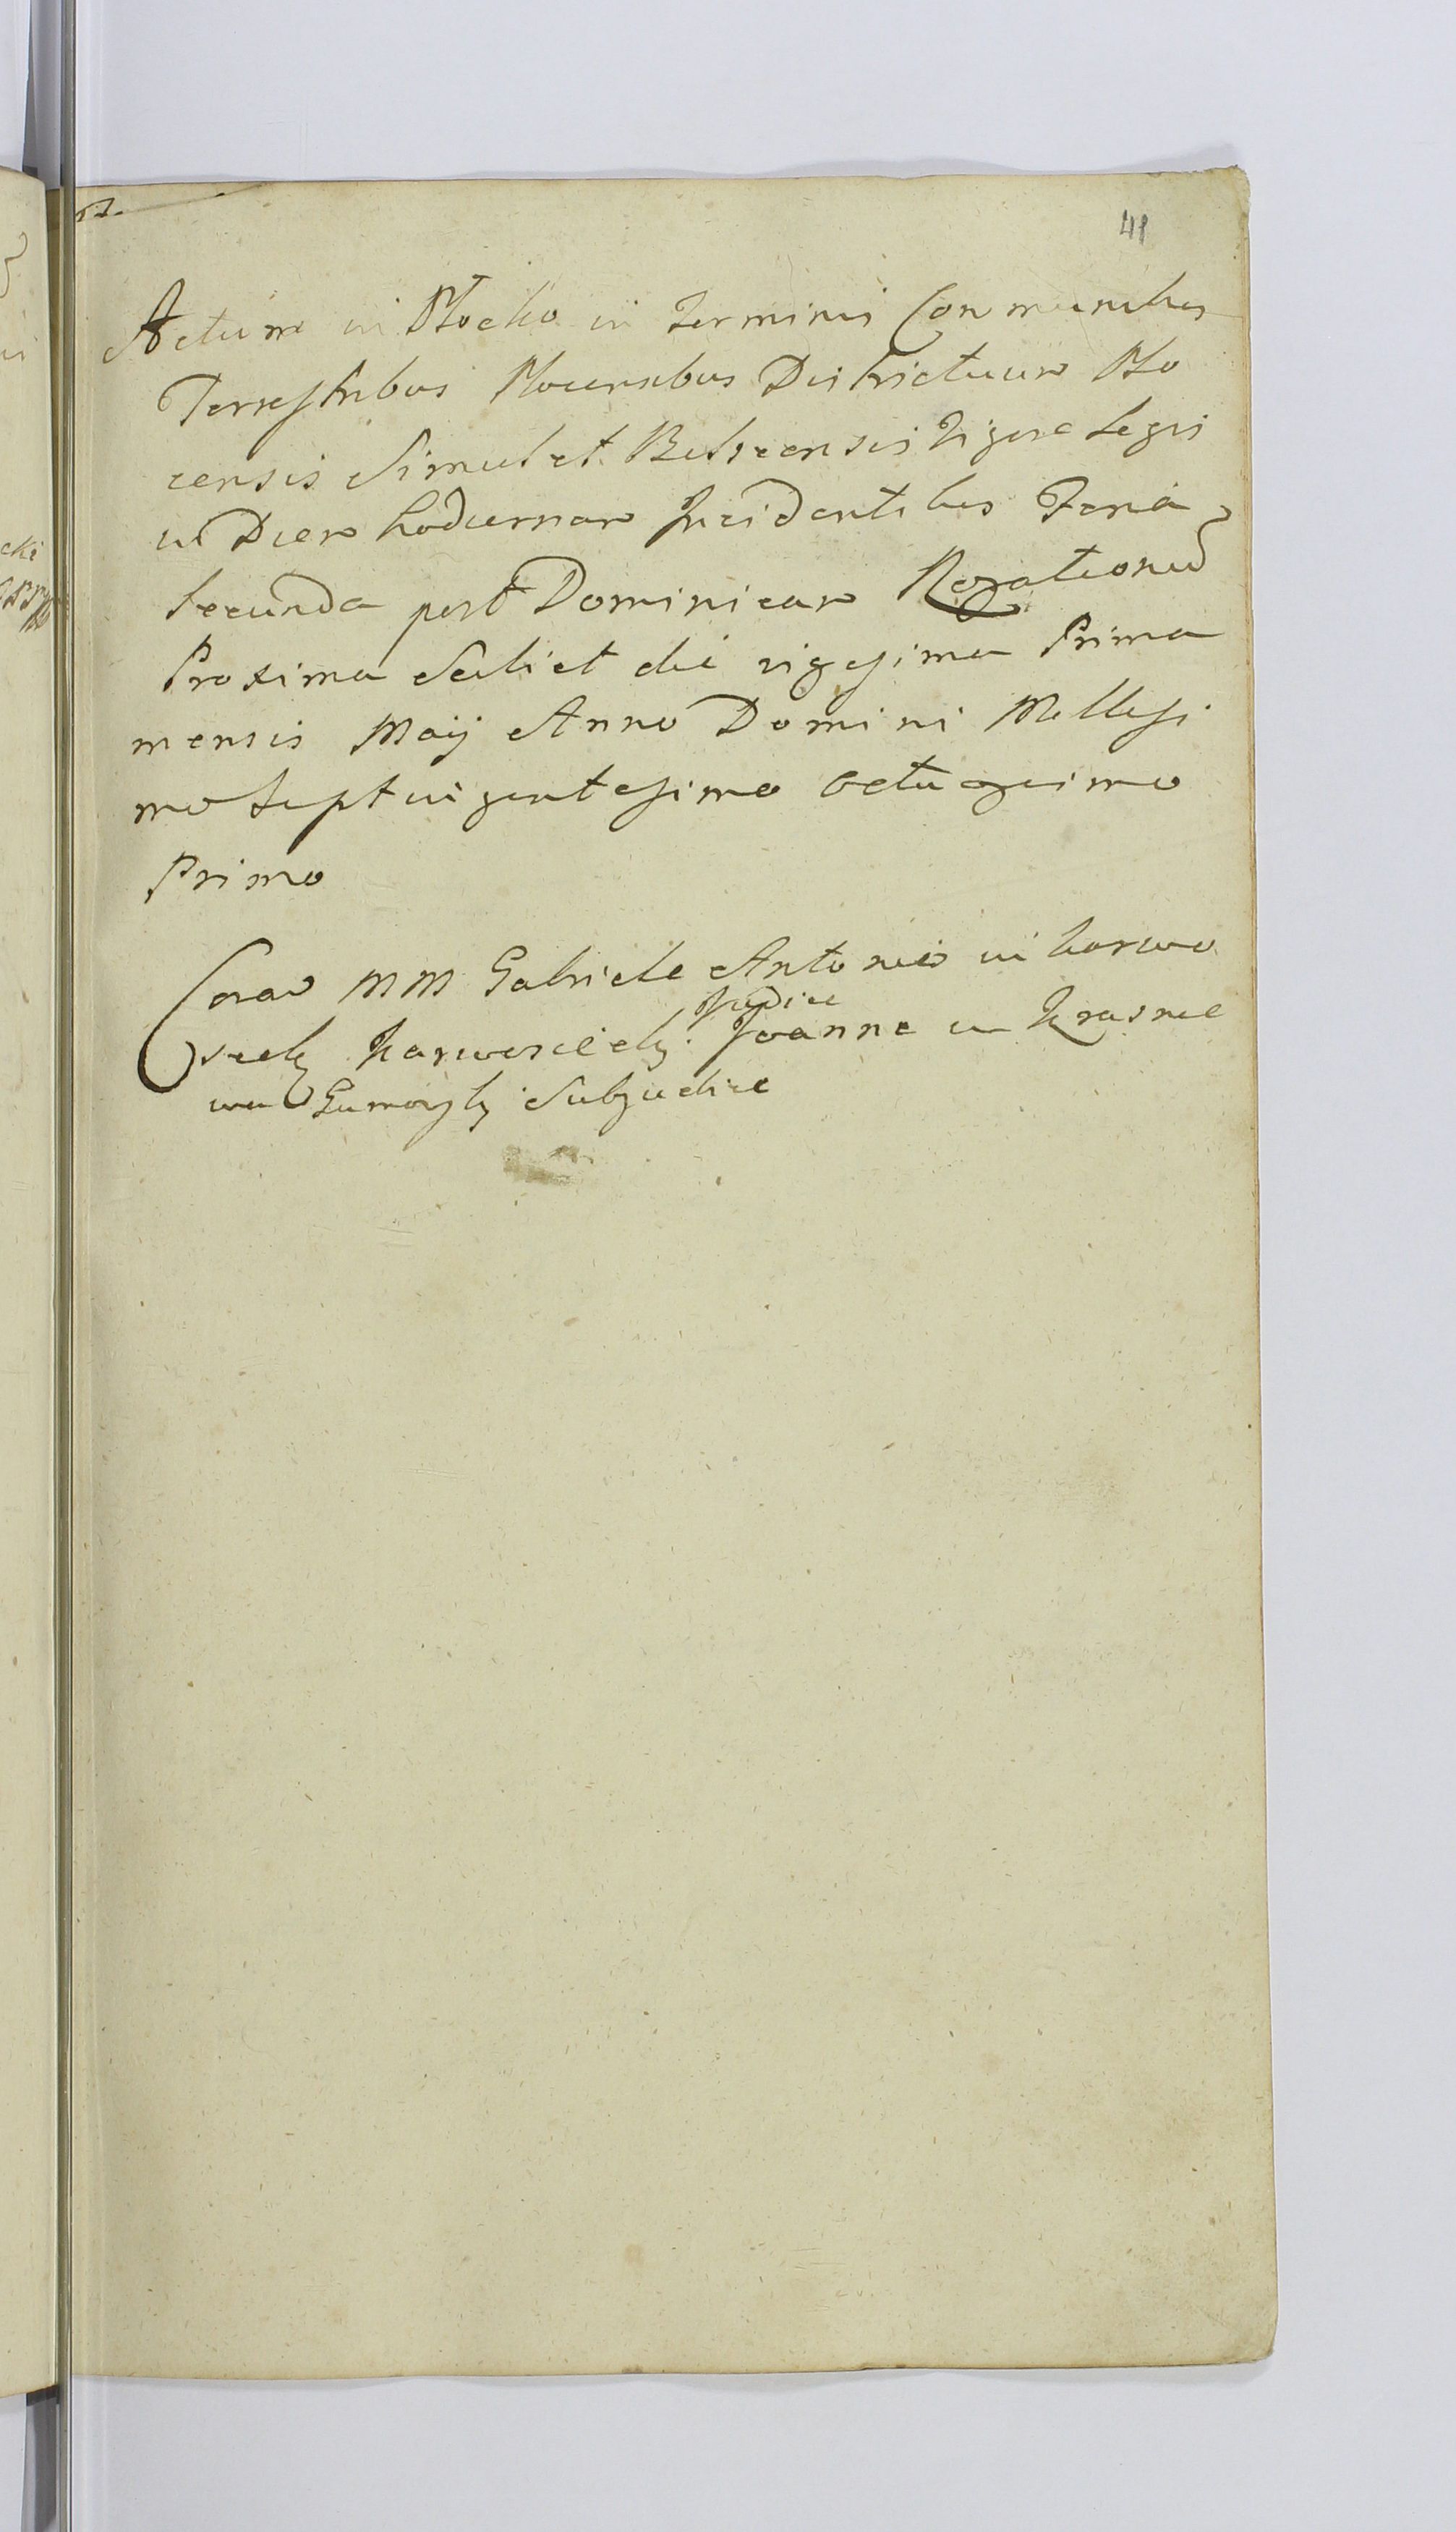 41
Actum in Plocko in Terminis Communibus
Terrestribus Plocensibus Districtuum Plo
censis Simul et Belscensis Vigore Legis
in Diem hodiernam Incidentibus Feria
Secunda post Dominicam Rogationum
Proxima Scilict die vigesima Prima
mensis Maij Anno Domini Millesi
mo Septuigentesimo octuagesimo
Primo
Coram MM Gabriele Antonio in
Judice
Joanne in Krasnie
wa Gumowsky Subjudice